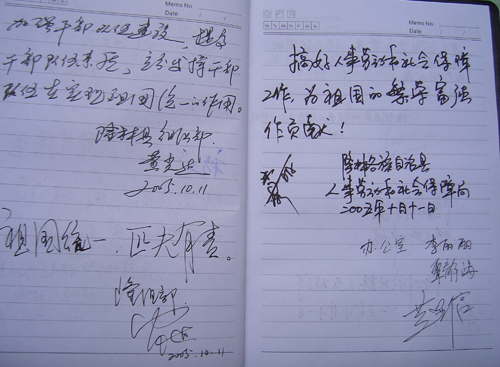 Memo No.
Date
加强干部队伍建设，提高
干部队伍素质，充分发挥干部
队伍在实现祖国统一的作用。
隆林县组织部
2005.10.11
祖国统一，匹夫有责。
2005.10.11
Memo No.
Date
搞好人事劳动和社会保障
工作，为祖国的繁荣富强
作贡献！
隆林各族自治县
人事劳动和社会保障局
二00五年十月十一日
办公室 李丽丽